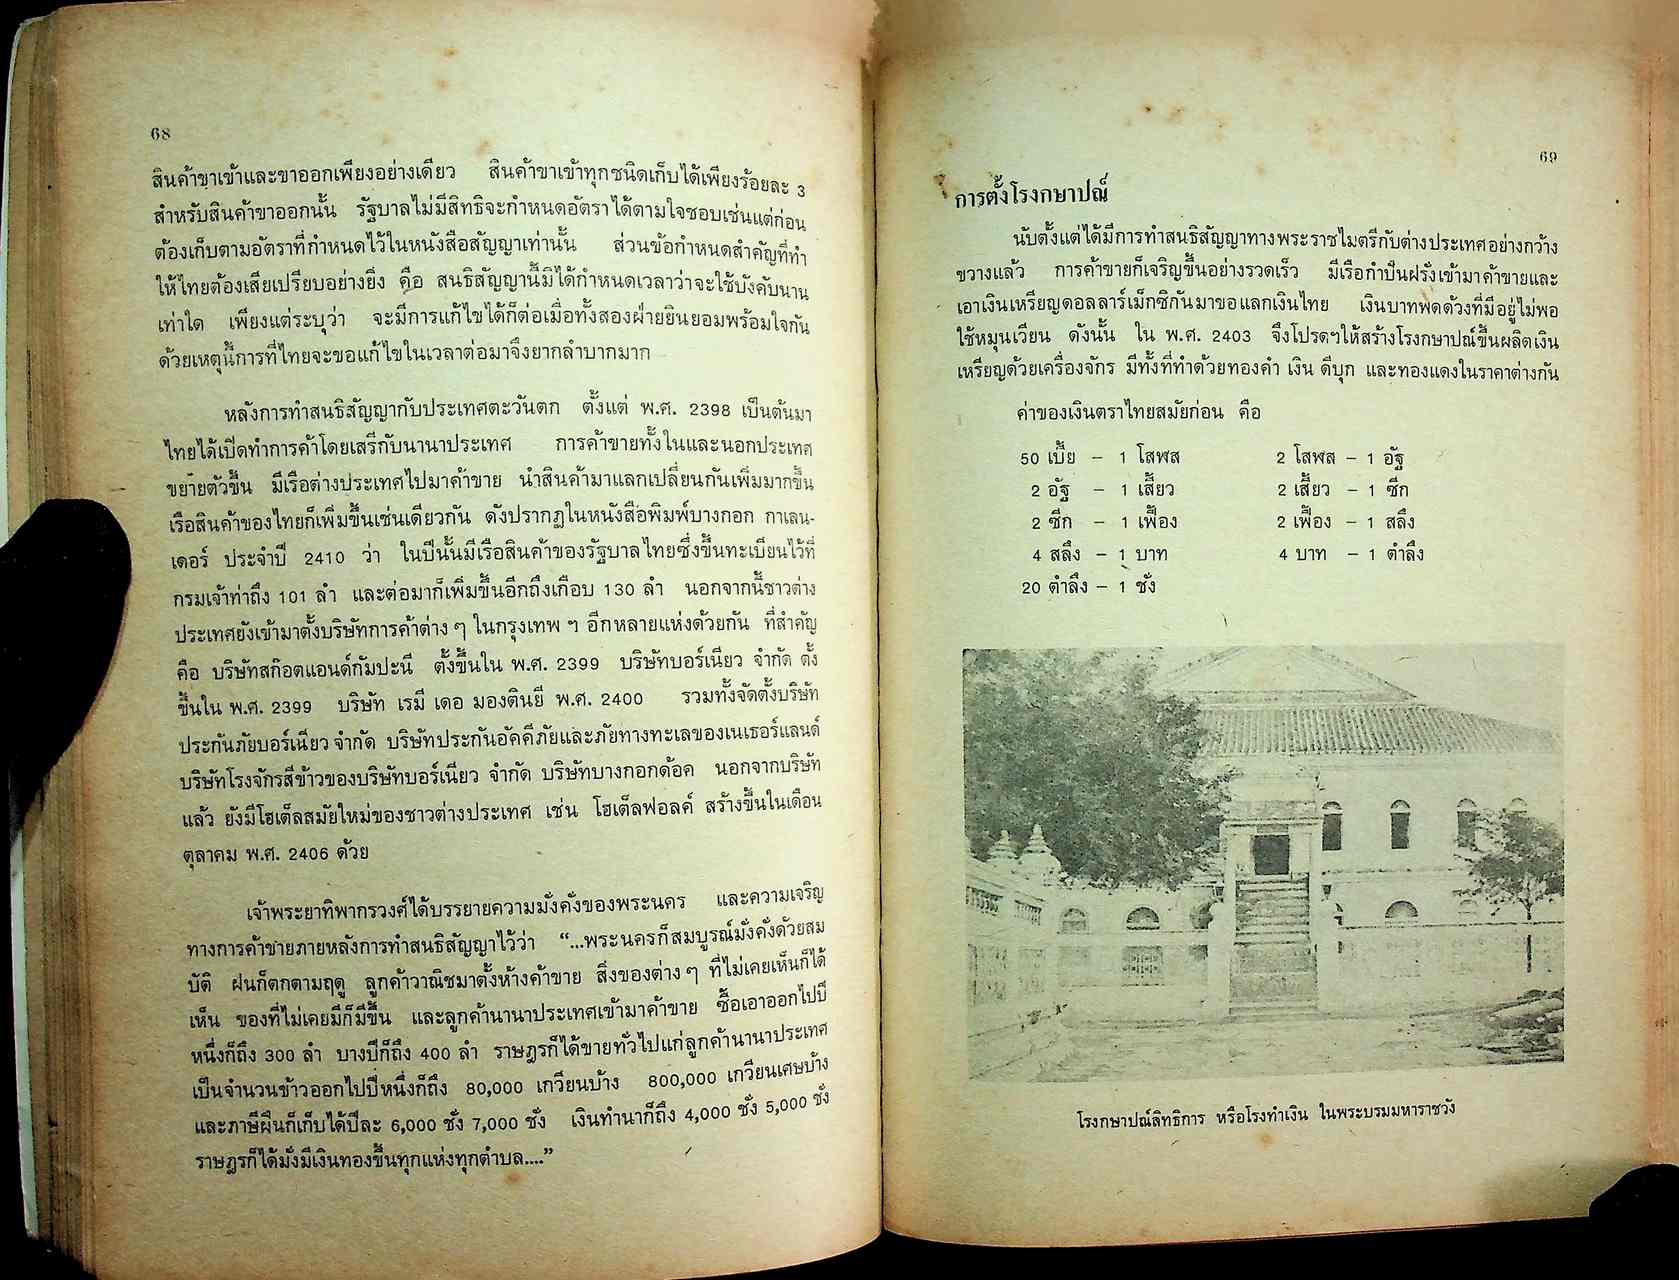 68
สินค้าขาเข้าและขาออกเพียงอย่างเดียว สินค้าขาเข้าทุกชนิดเก็บได้เพียงร้อยละ 3
สำหรับสินค้าขาออกนั้น รัฐบาลไม่มีสิทธิจะกำหนดอัตราได้ตามใจชอบเช่นแต่ก่อน
ต้องเก็บตามอัตราที่กำหนดไว้ในหนังสือสัญญาเท่านั้น ส่วนข้อกำหนดสำคัญที่ทำ
ให้ไทยต้องเสียเปรียบอย่างยิ่ง คือ สนธิสัญญานี้มิได้กำหนดเวลาว่าจะใช้บังคับนาน
เท่าใด เพียงแต่ระบุว่า จะมีการแก้ไขได้ก็ต่อเมื่อทั้งสองฝ่ายยินยอมพร้อมใจกัน
ด้วยเหตุนี้การที่ไทยจะขอแก้ไขในเวลาต่อมาจึงยากลำบากมาก
หลังการทำสนธิสัญญากับประเทศตะวันตก ตั้งแต่ พ.ศ. 2398 เป็นต้นมา
ไทยได้เปิดทำการค้าโดยเสรีกับนานาประเทศ การค้าขายทั้งในและนอกประเทศ
ขยายตัวขึ้น มีเรือต่างประเทศไปมาค้าขาย นำสินค้ามาแลกเปลี่ยนกันเพิ่มมากขึ้น
เรือสินค้าของไทยก็เพิ่มขึ้นเช่นเดียวกัน ดังปรากฏในหนังสือพิมพ์บางกอก กาเลน-
เดอร์ ประจำปี 2410 ว่า ในปีนั้นมีเรือสินค้าของรัฐบาลไทยซึ่งขึ้นทะเบียนไว้ที่
กรมเจ้าท่าถึง 101 ลำ และต่อมาก็เพิ่มขึ้นอีกถึงเกือบ 130 ลำ นอกจากนี้ชาวต่าง
ประเทศยังเข้ามาตั้งบริษัทการค้าต่าง ๆ ในกรุงเทพ ฯ อีกหลายแห่งด้วยกัน ที่สำคัญ
คือ บริษัทสก๊อตแอนด์กัมปะนี ตั้งขึ้นใน พ.ศ. 2399 บริษัทบอร์เนียว จำกัด ตั้ง
ขึ้นใน พ.ศ. 2399 บริษัท เรมี เดอ มองตินยี พ.ศ. 2400 รวมทั้งจัดตั้งบริษัท
ประกันภัยบอร์เนียว จำกัด บริษัทประกันอัคคีภัยและภัยทางทะเลของเนเธอร์แลนด์
บริษัทโรงจักรสีข้าวของบริษัทบอร์เนียว จำกัด บริษัทบางกอกด๊อค นอกจากบริษัท
แล้ว ยังมีโฮเต็ลสมัยใหม่ของชาวต่างประเทศ เช่น โฮเต็ลฟอลค์ สร้างขึ้นในเดือน
ตุลาคม พ.ศ. 2406 ด้วย
เจ้าพระยาทิพากรวงศ์ได้บรรยายความมั่งคั่งของพระนคร และความเจริญ
ทางการค้าขายภายหลังการทำสนธิสัญญาไว้ว่า “...พระนครก็สมบูรณ์มั่งคั่งด้วยสม
บัติ ฝนก็ตกตามฤดู ลูกค้าวาณิชมาตั้งห้างค้าขาย สิ่งของต่าง ๆ ที่ไม่เคยเห็นก็ได้
เห็น ของที่ไม่เคยมีก็มีขึ้น และลูกค้านานาประเทศเข้ามาค้าขาย ซื้อเอาออกไปปี
หนึ่งก็ถึง 300 ลำ บางปีก็ถึง 400 ลำ ราษฎรก็ได้ขายทั่วไปแก่ลูกค้านานาประเทศ
เป็นจำนวนข้าวออกไปปีหนึ่งก็ถึง 80,000 เกวียนบ้าง 800,000 เกวียนเศษบ้าง
และภาษีฝิ่นก็เก็บได้ปีละ 6,000 ชั่ง 7,000 ชั่ง เงินทำนาก็ถึง 4,000 ชั่ง 5,000 ชั่ง
ราษฎรก็ได้มั่งมีเงินทองขึ้นทุกแห่งทุกตำบล....”
69
การตั้งโรงกษาปณ์
นับตั้งแต่ได้มีการทำสนธิสัญญาทางพระราชไมตรีกับต่างประเทศอย่างกว้าง
ขวางแล้ว การค้าขายก็เจริญขึ้นอย่างรวดเร็ว มีเรือกำปั่นฝรั่งเข้ามาค้าขายและ
เอาเงินเหรียญดอลลาร์เม็กซิกันมาขอแลกเงินไทย เงินบาทพดด้วงที่มีอยู่ไม่พอ
ใช้หมุนเวียน ดังนั้น ใน พ.ศ. 2403 จึงโปรดฯให้สร้างโรงกษาปณ์ขึ้นผลิตเงิน
เหรียญด้วยเครื่องจักร มีทั้งที่ทำด้วยทองคำ เงิน ดีบุก และทองแดงในราคาต่างกัน
ค่าของเงินตราไทยสมัยก่อน คือ
50 เบี้ย – 1 โสฬส 2 โสฬส – 1 อัฐ
2 อัฐ – 1 เสี้ยว 2 เสี้ยว – 1 ซีก
2 ซีก – 1 เฟื้อง 2 เฟื้อง – 1 สลึง
4 สลึง – 1 บาท 4 บาท – 1 ตำลึง
20 ตำลึง – 1 ชั่ง
โรงกษาปณ์สิทธิการ หรือโรงทำเงิน ในพระบรมมหาราชวัง